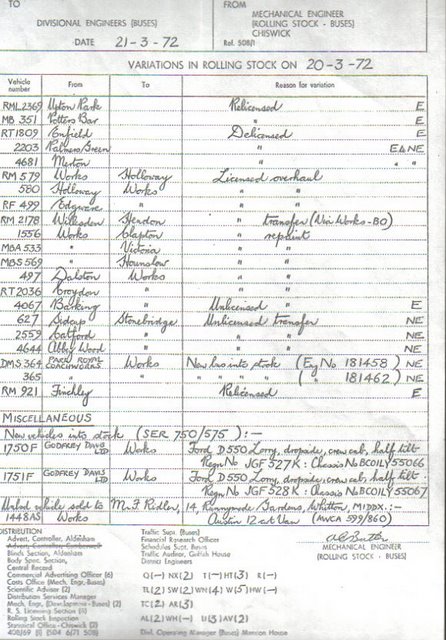 TO FROM
DIVISIONAL ENGINEERS (BUSES) MECHANICAL ENGINEER
(ROLLING STOCK - BUSES)
CHISWICK
DATE 21-3-72 Ref. 508/1
VARIATIONS IN ROLLING STOCK ON 20-3-72
Vehicle number From To Reason for variation
RML2369 Upton Park Relicensed E
MB 351 Potters Bar " E
RT1809 Enfield Delicensed E
2203 Palmers Green " E&NE
4681 Merton " " "
RM 579 Works Holloway Licensed overhaul
580 Holloway Works " "
RF 499 Edgware " " "
RM 2178 Willesden Hendon " transfer (Via Works-BO)
1556 Works Clapton " repaint
MBA 533 " Victoria " "
MBS 569 " Hounslow " "
497 Dalston Works " "
RT2036 Croydon " " "
4067 Barking " Unlicensed " E
627 Sidcup Stonebridge Unlicensed transfer NE
2559 Catford " " " NE
4644 Abbey Wood " " " NE
DMS 364 PARK ROYAL COACHWORKS Works New bus into stock (Eng No 181458) NE
365 " " " " " " ( " 181462) NE
RM 921 Finchley Relicensed E
MISCELLANEOUS
New vehicles into stock (SER 750/575) :-
1750F GODFREY DAVIS LTD Works Ford D550 Lorry, dropside, crew cab, half tilt-
Regn No JGF 527K : Chassis No BCOILY55066
1751F GODFREY DAVIS LTD Works Ford D550 Lorry, dropside, crew cab, half tilt-
Regn No JGF 528K : Chassis No BCOILY55067
vehicle sold to M. F. Ridley, 14, Runnymede Gardens, Whitton, MIDDX :-
1448AS Works Austin 12 cwt Van (MVCA 599/860)
DISTRIBUTION
Advert. Controller, Aldenham
Blinds Section, Aldenham
Body Spec. Section,
Central Record
Commercial Advertising Officer (6)
Costs Office (Mech. Engr. Buses)
Scientific Adviser (2)
Distribution Services Manager
Mech. Engr. (Development - Buses) (2)
R. S. Licensing Section (5)
Rolling Stock Inspection
Statistical Office - Chiswick (2)
Traffic Supt. (Buses)
Financial Research Officer
Schedules Supt. Buses
Traffic Auditor, Griffith House
District Engineers
Q(-) NX(2) T(-) HT(3) R(-)
TL(2) SW(2) WN(4) W(5) HW(-)
TC(2) AR(3)
AL(2) WH(-) U(3) AV(2)
Dist. Operating Manager (Buses) Mansion House
MECHANICAL ENGINEER
(ROLLING STOCK - BUSES)